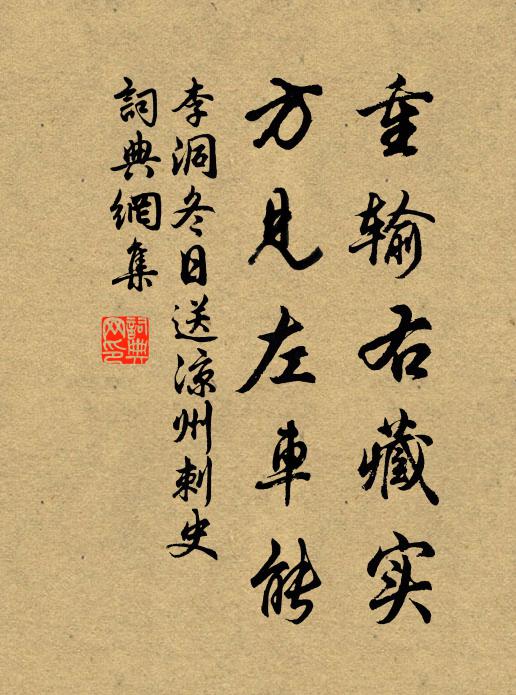 重输右藏实
方見左車能
李洞冬日送凉州刺史
詞典網集
詞典
网印